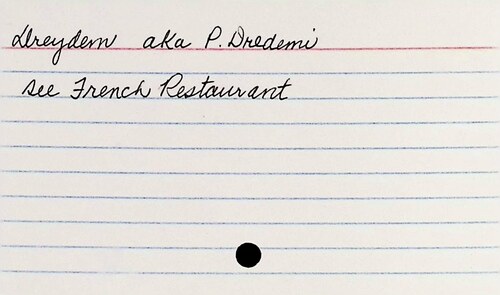 Dreydem aka P. Dredemi
see French Restaurant